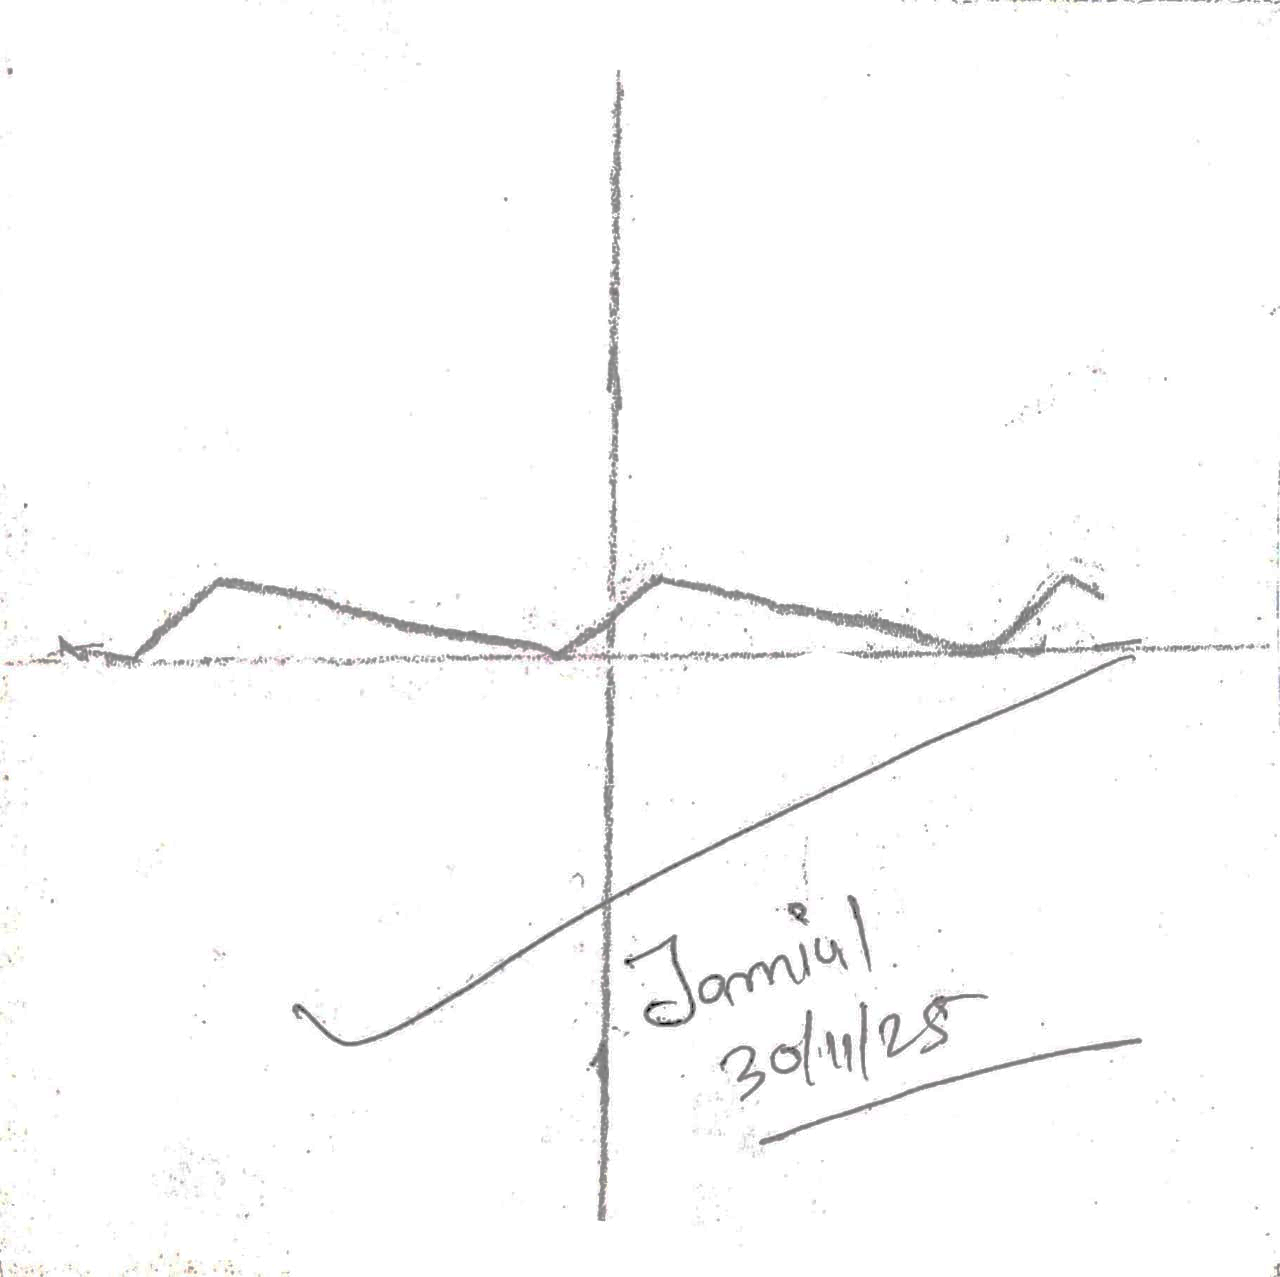 Jamiul
30/11/25